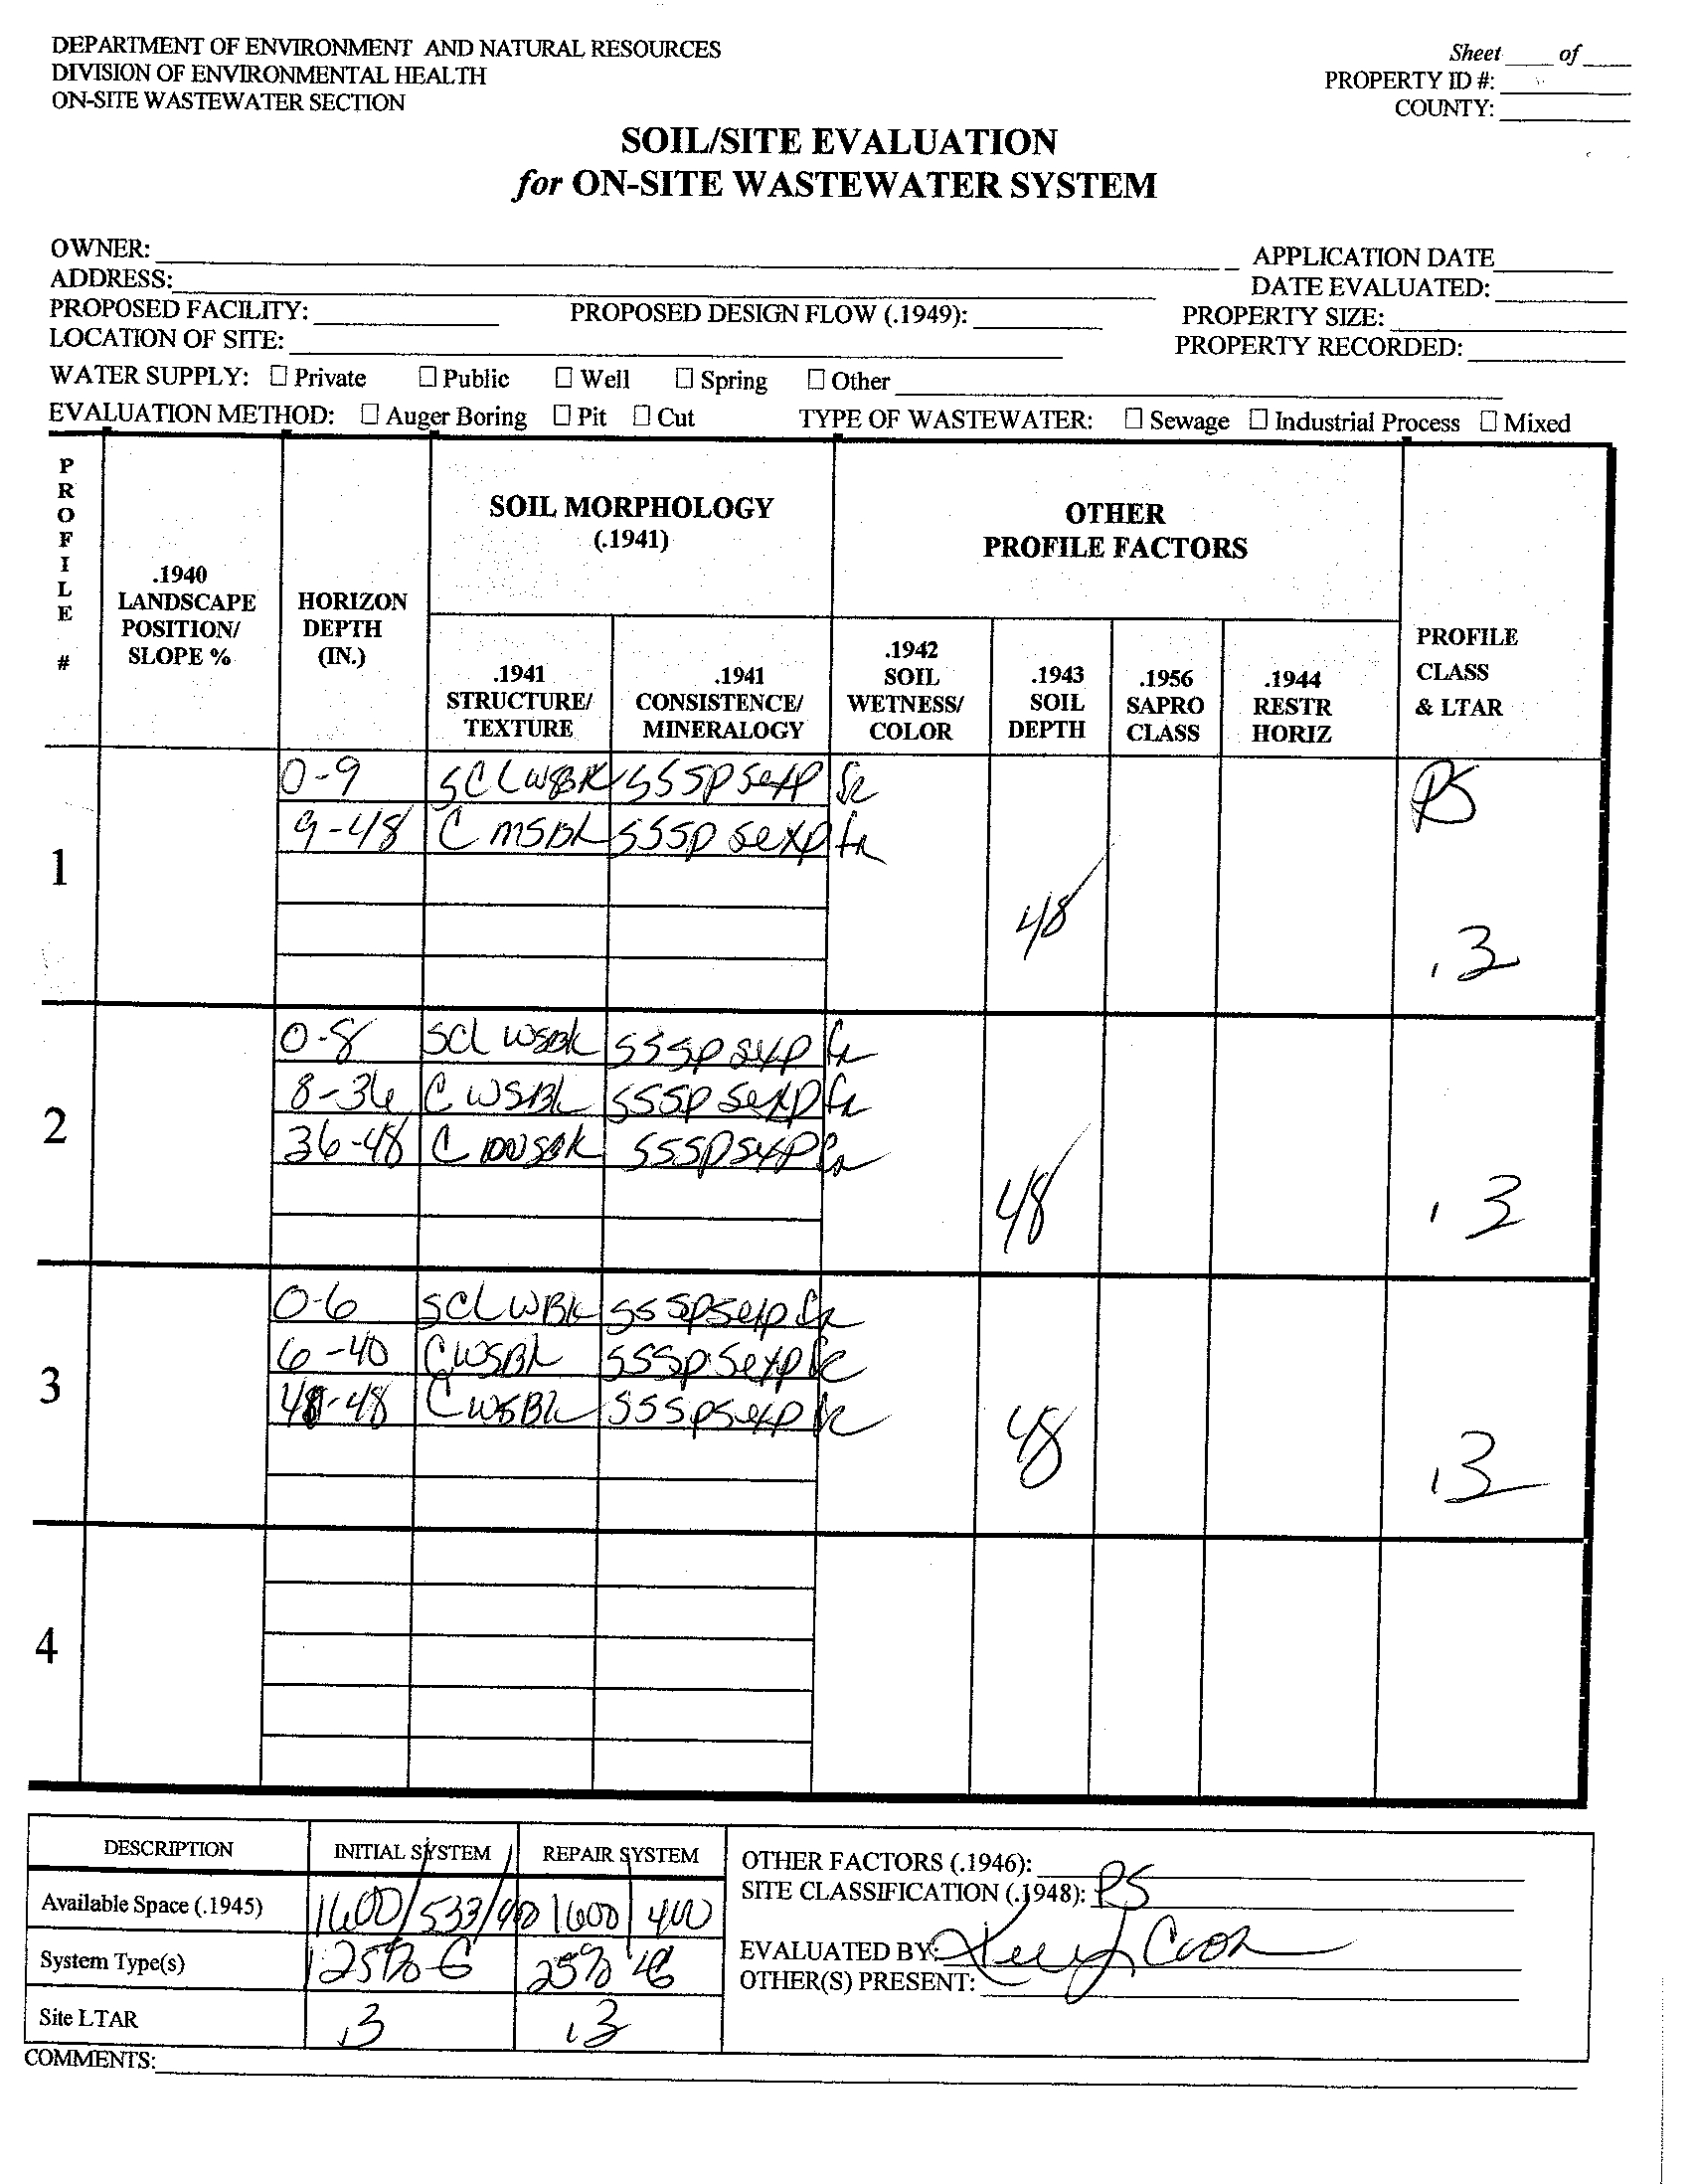 DEPARTMENT OF ENVIRONMENT AND NATURAL RESOURCES
DIVISION OF ENVIRONMENTAL HEALTH
ON-SITE WASTEWATER SECTION
Sheet ____ of ____
PROPERTY ID #:
COUNTY:
SOIL/SITE EVALUATION
for ON-SITE WASTEWATER SYSTEM
OWNER:
APPLICATION DATE
ADDRESS:
DATE EVALUATED:
PROPOSED FACILITY: PROPOSED DESIGN FLOW (.1949): PROPERTY SIZE:
LOCATION OF SITE: PROPERTY RECORDED:
WATER SUPPLY: ☐ Private ☐ Public ☐ Well ☐ Spring ☐ Other
EVALUATION METHOD: ☐ Auger Boring ☐ Pit ☐ Cut TYPE OF WASTEWATER: ☐ Sewage ☐ Industrial Process ☐ Mixed
PROFILE #
.1940 LANDSCAPE POSITION/ SLOPE %
HORIZON DEPTH (IN.)
SOIL MORPHOLOGY (.1941)
.1941 STRUCTURE/ TEXTURE
.1941 CONSISTENCE/ MINERALOGY
OTHER PROFILE FACTORS
.1942 SOIL WETNESS/ COLOR
.1943 SOIL DEPTH
.1956 SAPRO CLASS
.1944 RESTR HORIZ
PROFILE CLASS & LTAR
1
0-9 SCL WSBK SSSP Sexp PS
9-48 C MSBK SSSP Sexp fr
48
.3
2
0-8 SCL WSBK SSSP Sexp fr
8-36 C WSBK SSSP Sexp fr
36-48 C SBK SSSP Sexp
48
.3
3
0-6 SCL WBK SSSP Sexp fr
6-40 C WSBK SSSP Sexp
-48 C WSBK SSSP Sexp
48
.3
4
DESCRIPTION INITIAL SYSTEM REPAIR SYSTEM
Available Space (.1945) 1600/533/ 1600 400
System Type(s) 25% 25%
Site LTAR .3 .3
OTHER FACTORS (.1946):
SITE CLASSIFICATION (.1948): PS
EVALUATED BY: Cook
OTHER(S) PRESENT:
COMMENTS: